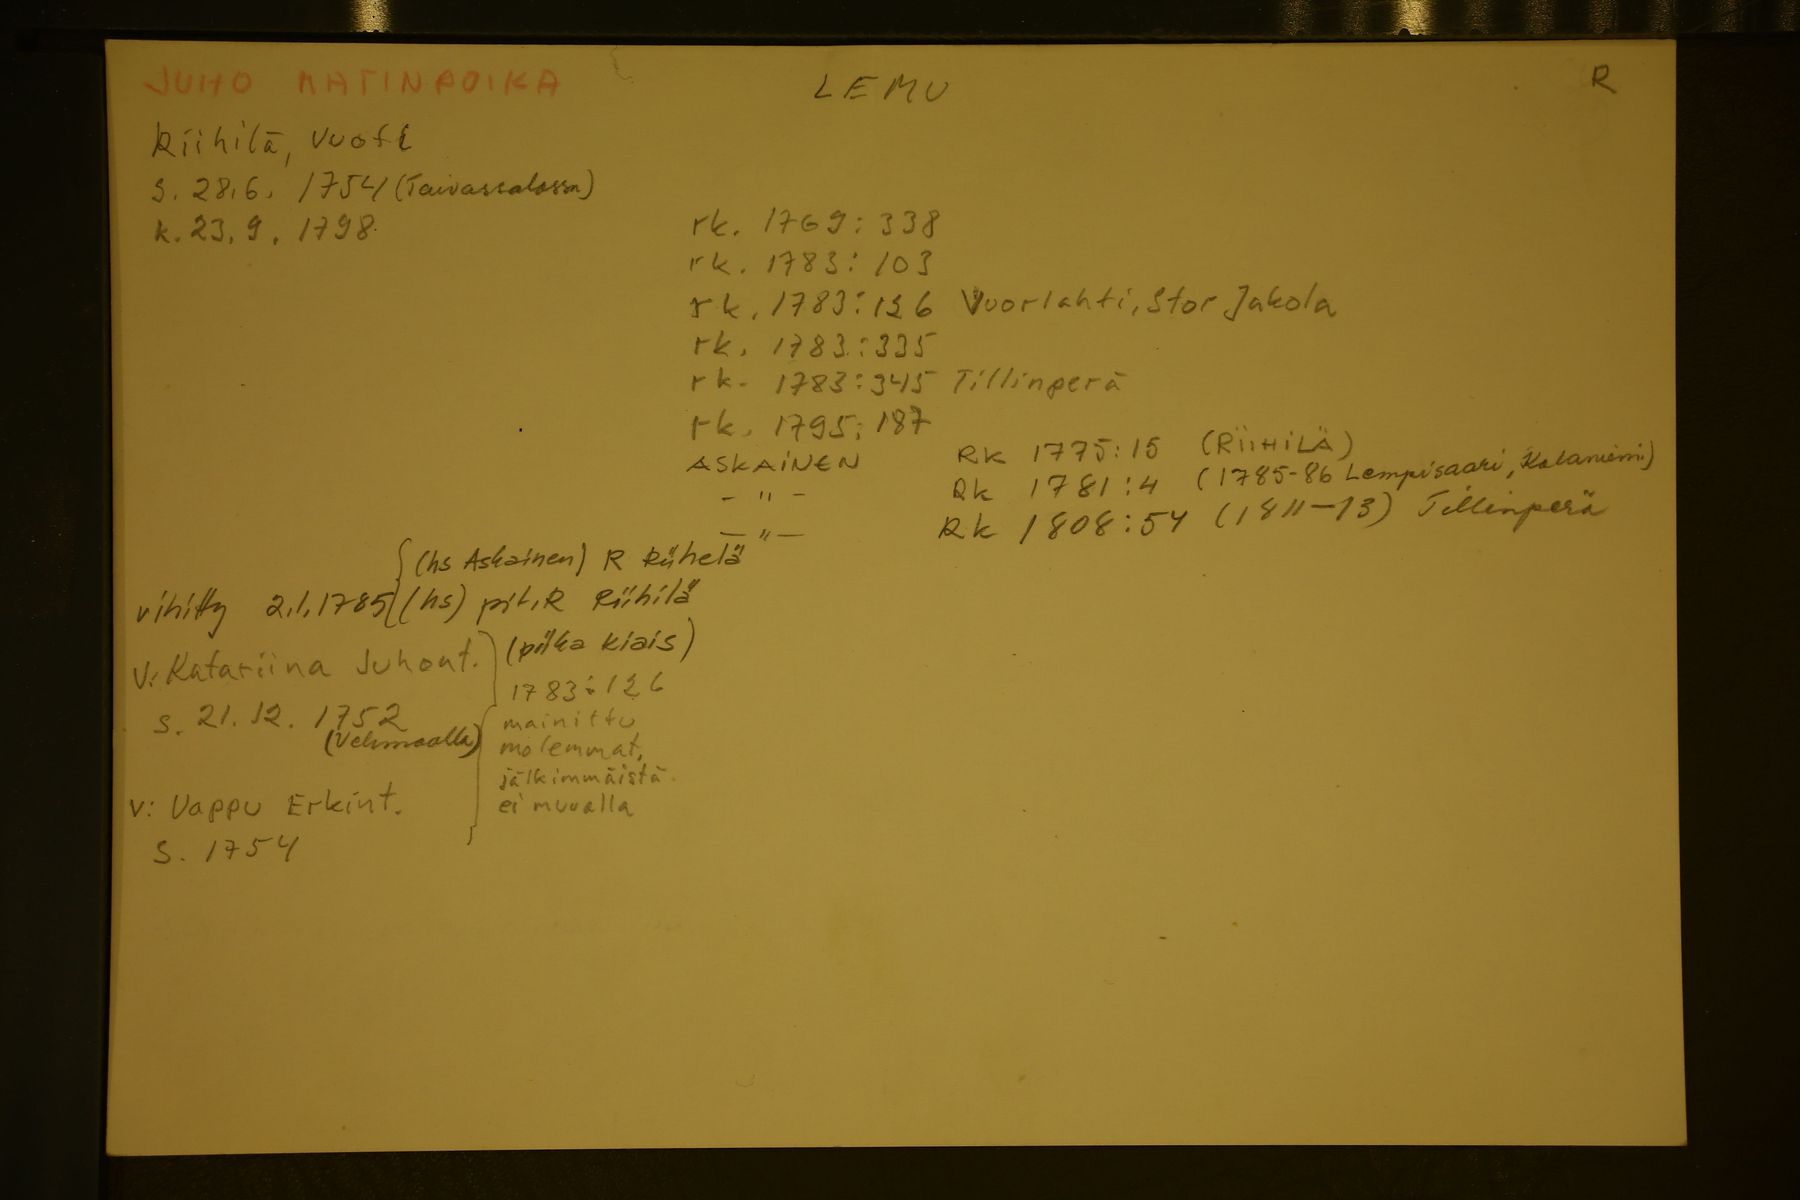 JUHO MATINPOIKA
LEMU
R
Riihilä, Vuosi
s. 28.6. 1754 (Taivassalossa)
k. 23.9. 1798
rk. 1769: 338
rk. 1783: 103
rk. 1783: 126 Vuorlahti, Stor Jakola
rk. 1783: 335
rk. 1783: 345 Tillinperä
rk. 1795: 187
ASKAINEN RK 1775: 15 (RIIHILÄ)
- " - Rk 1781: 4 (1785-86 Lempisaari, Kataniemi)
- " - Rk 1808: 54 (1811-13) Tillinperä
(hs Askainen) R Riihelä
vihitty 2.1.1785 (hs) pit. R Riihilä
V: Katariina Juhont. (piika Kiais)
s. 21.12. 1752
(Vehmaalla)
1783: 126
mainittu
molemmat,
jälkimmäistä
ei muualla
V: Vappu Erkint.
s. 1754